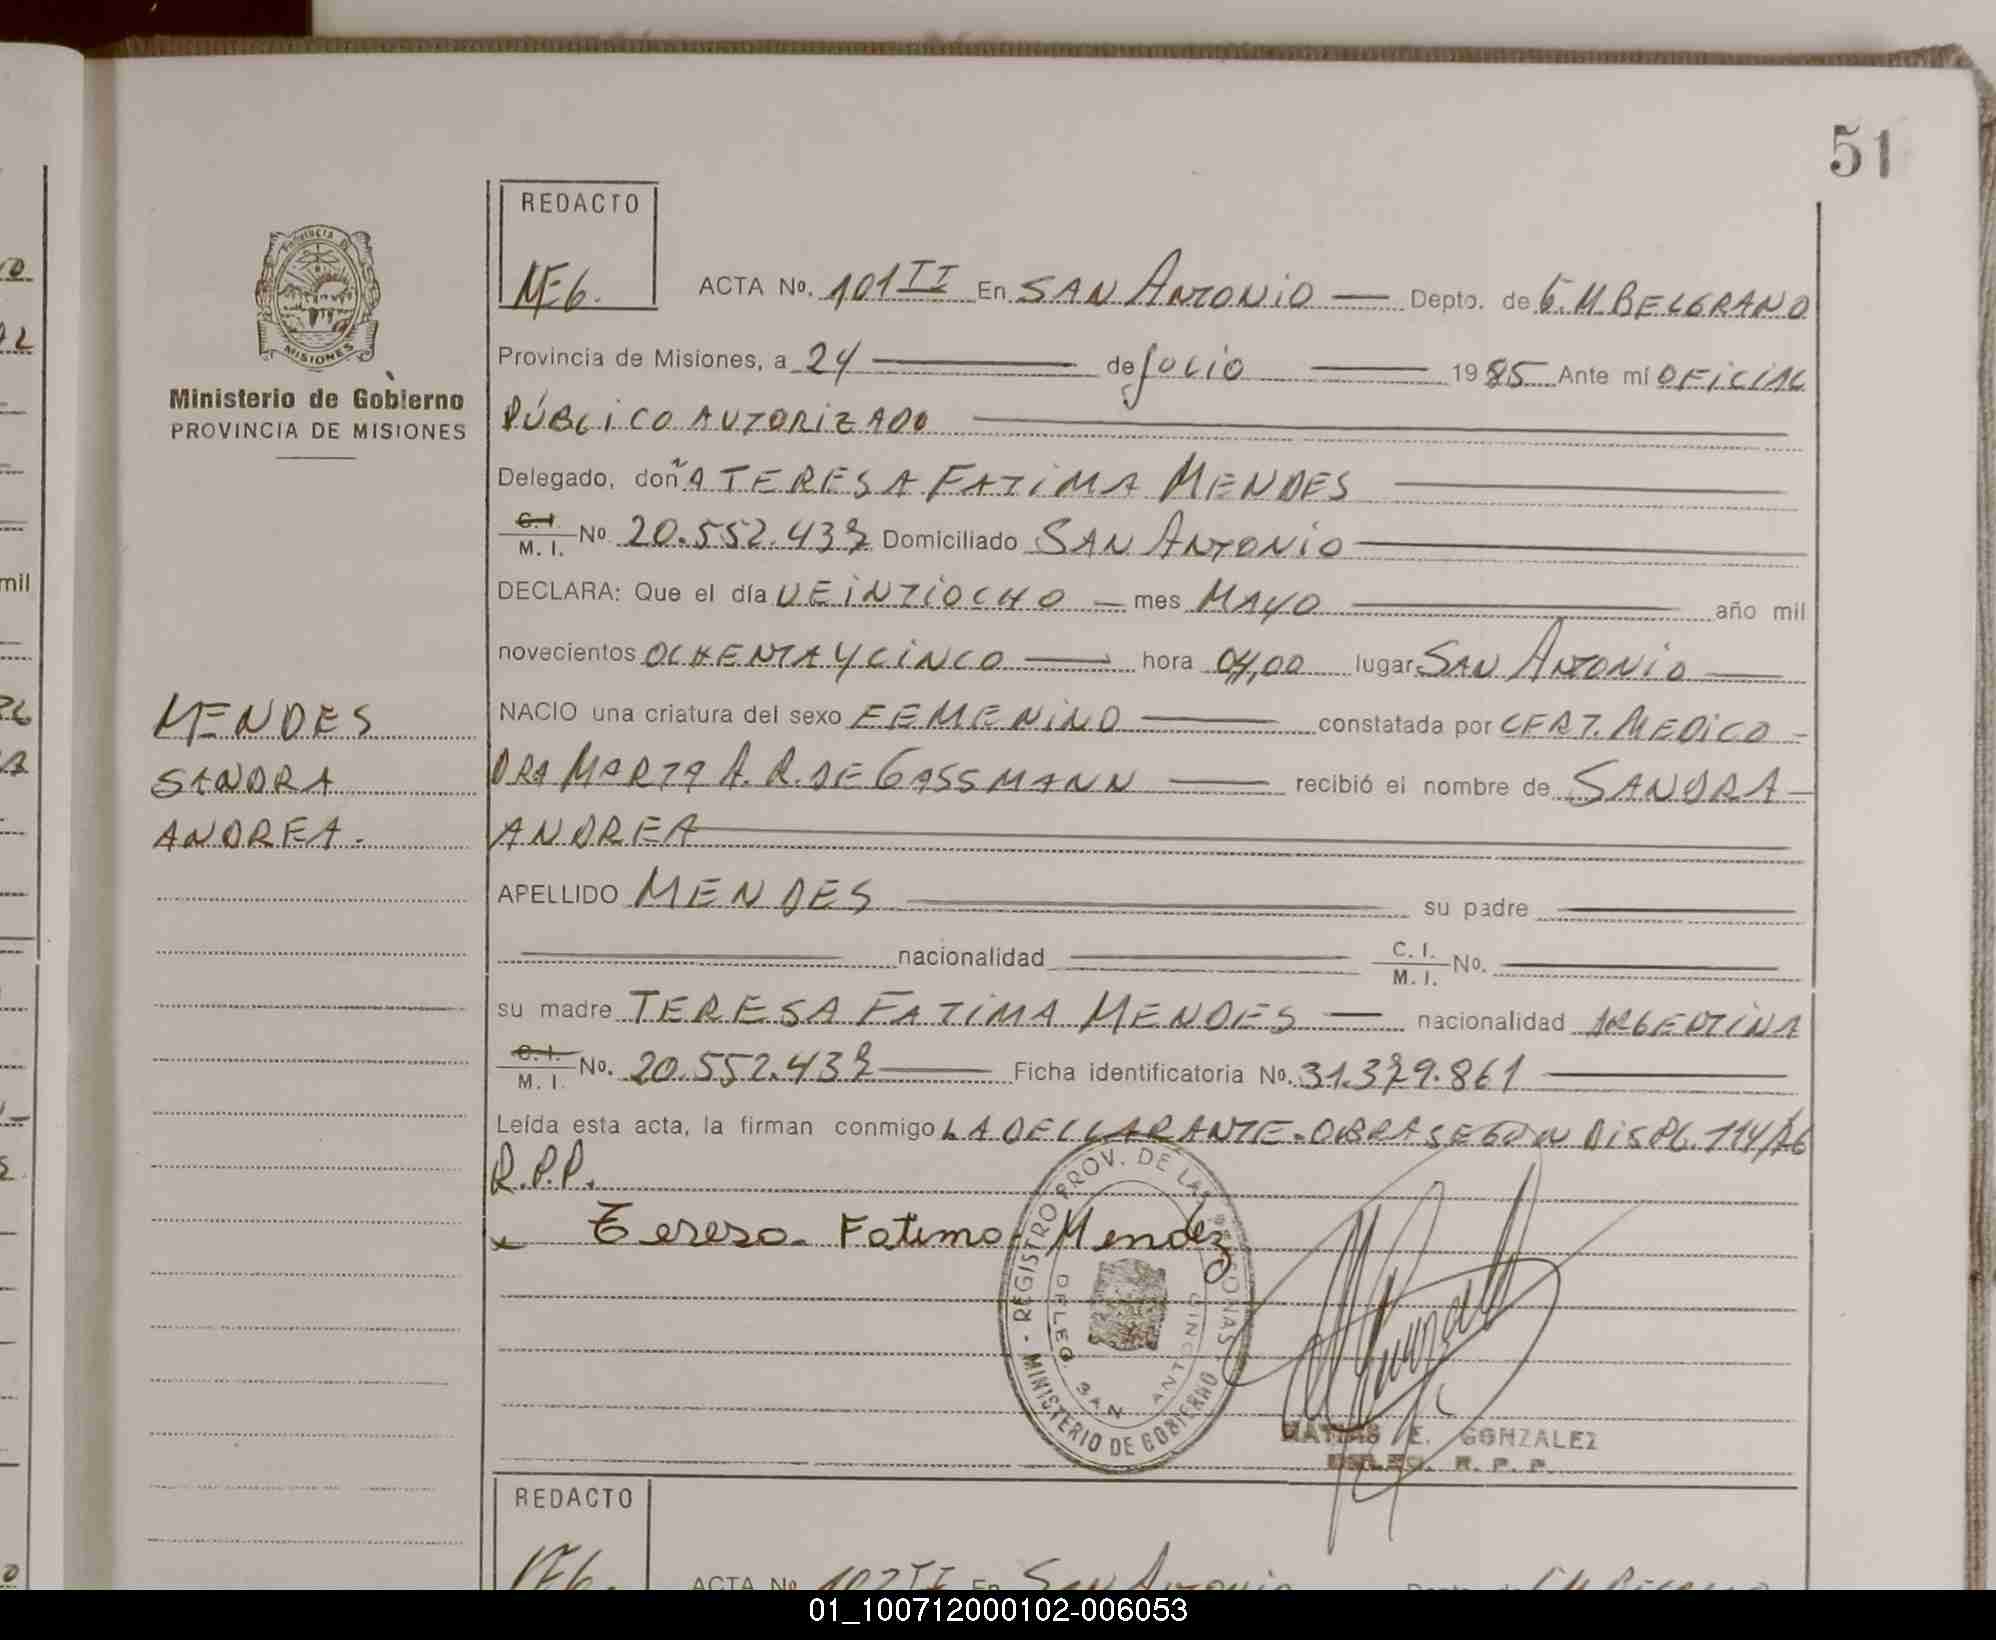 51
REDACTO
MEG.
ACTA No. 101 II En SAN ANTONIO — Depto. de G.M. BELGRANO
Provincia de Misiones, a 24 — de Julio — 1985 Ante mí OFICIAL
PÚBLICO AUTORIZADO
Ministerio de Gobierno
PROVINCIA DE MISIONES
MISIONES
Delegado, doñA TERESA FATIMA MENDES
C.I. M. I. No 20.552.437 Domiciliado SAN ANTONIO
DECLARA: Que el día VEINTIOCHO — mes MAYO — año mil
novecientos OCHENTA Y CINCO — hora 04,00 lugar SAN ANTONIO —
NACIO una criatura del sexo FEMENINO — constatada por CERT. MEDICO -
DRA MARTA A. R. DE GASSMANN — recibió el nombre de SANDRA —
ANDREA
MENDES
SANDRA
ANDREA.
APELLIDO MENDES — su padre —
— nacionalidad — C. I. M. I. No. —
su madre TERESA FATIMA MENDES — nacionalidad ARGENTINA
C.I. M. I. No. 20.552.437 — Ficha identificatoria No. 31.379.861 —
Leída esta acta, la firman conmigo LA DECLARANTE-OBRA SEGÚN DISP.G. 114/76
R.P.P.
x Teresa Fatima Mendez
REGISTRO PROV. DE LAS PERSONAS
MINISTERIO DE GOBIERNO
DELEG. SAN ANTONIO
MATIAS E. GONZALEZ
DELEG. R. P. P.
REDACTO
MEG.
ACTA No 102 II En San Antonio
01_100712000102-006053